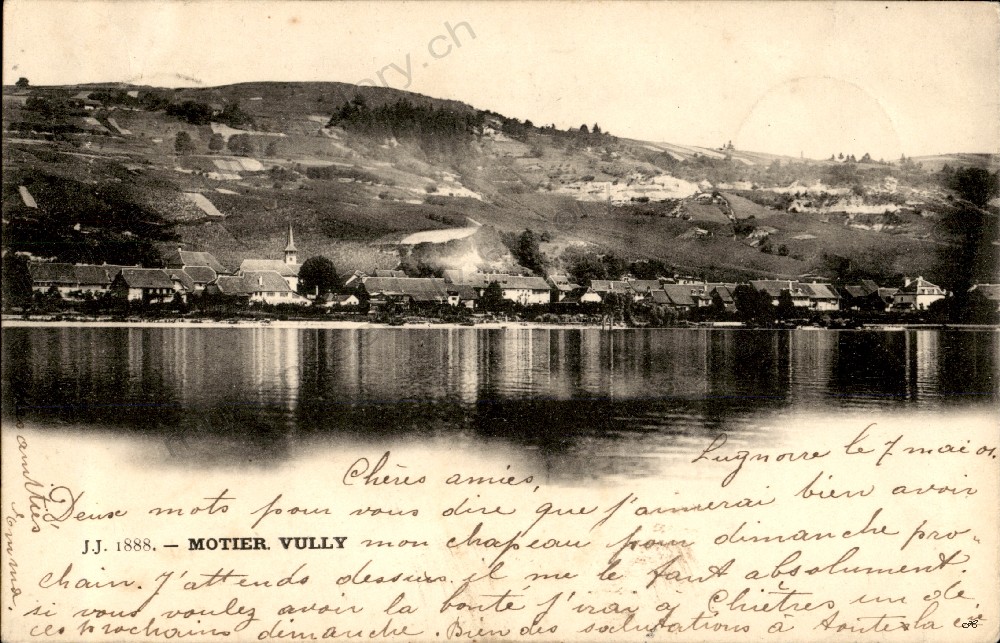 Lugnorre le 7 mai 01.
Chères amies,
Deux mots pour vous dire que j'aimerai bien avoir
J.J. 1888. — MOTIER. VULLY
mon chapeau pour dimanche pro-
chain. J'attends dessus il me le faut absolument.
si vous voulez avoir la bonté j'irai à Chiètres un de
ces prochains dimanche. Bien des salutations à toute la
amitiés
Emma.